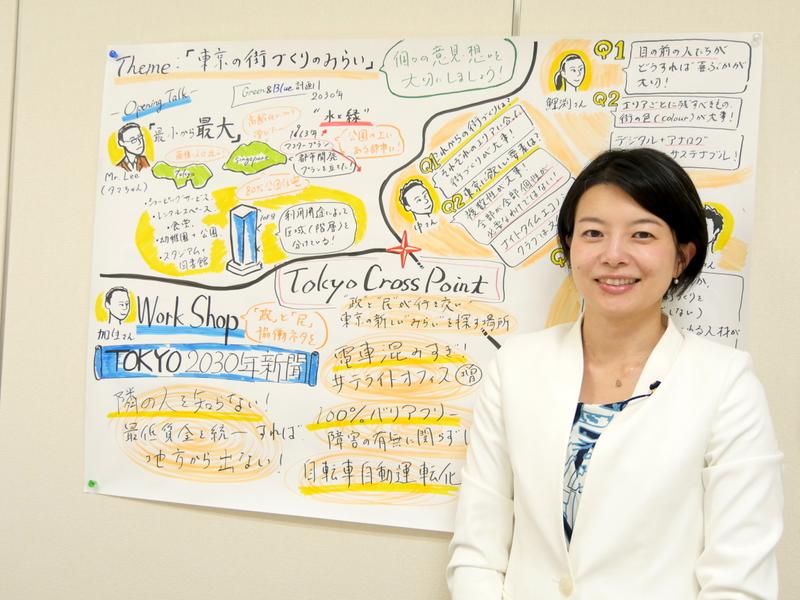 Theme:「東京の街づくりのみらい」
個々の意見・想いを
大切にしましょう!
Opening Talk
Green&Blue計画!
2030年
「最小から最大」
Mr. Lee
Tokyo
Singapore
"水と緑"
マスタープラン
都市開発
プランを立てた!
公園の上に
ある都市に!
80%
・ショッピングサービス
・レンタルスペース
・食堂
・幼稚園・公園
・スタジアム+
図書館
利用用途によって
区域(階層)を
分けている!
Q1
これからの街づくりは?
それぞれのエリアに合った
街づくりが大事!
Q2
東京に欲しい要素は?
複数性が大事!
全部が全部個性が
必要なわけではない!
ナイトタイムエコノミー
中さん
鯉渕さん
Q1
目の前の人たちが
どうすれば喜ぶかが
大切!
Q2
エリアごとに残すべきもの、
街の色(colour)が大事!
デジタル+アナログ
サステナブル!
Tokyo CrossPoint
"政"と"民"が行き交い
東京の新しい"みらい"を探す場所
加住さん
Work Shop
「政」と「民」
協働ネタを
TOKYO 2030年新聞
隣の人を知らない!
最低賃金を統一すれば
地方から出ない!
電車混みすぎ!
サテライトオフィス
100%バリアフリー
障害の有無に関らず!
自転車自動運転化